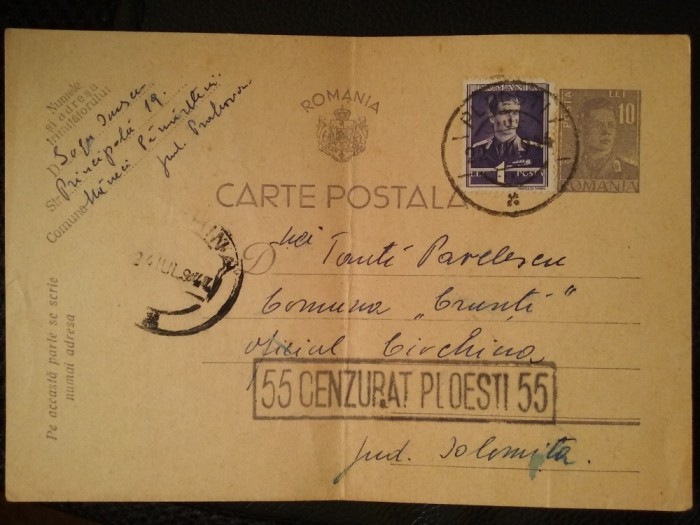 Numele
și adresa
trimițătorului
D
Str. Principală 19.
Comuna
jud. Prahova
ROMANIA
CARTE POSTALA
ROMANIA
1
LEI
POSTA
POSTA
LEI
10
ROMANIA
CIOCHINA
24 IUL 94
D
Tanti Pavelescu
Comuna „Crunți"
oficiul Ciochina
55 CENZURAT PLOESTI 55
jud. Ialomița.
Pe această parte se scrie
numai adresa